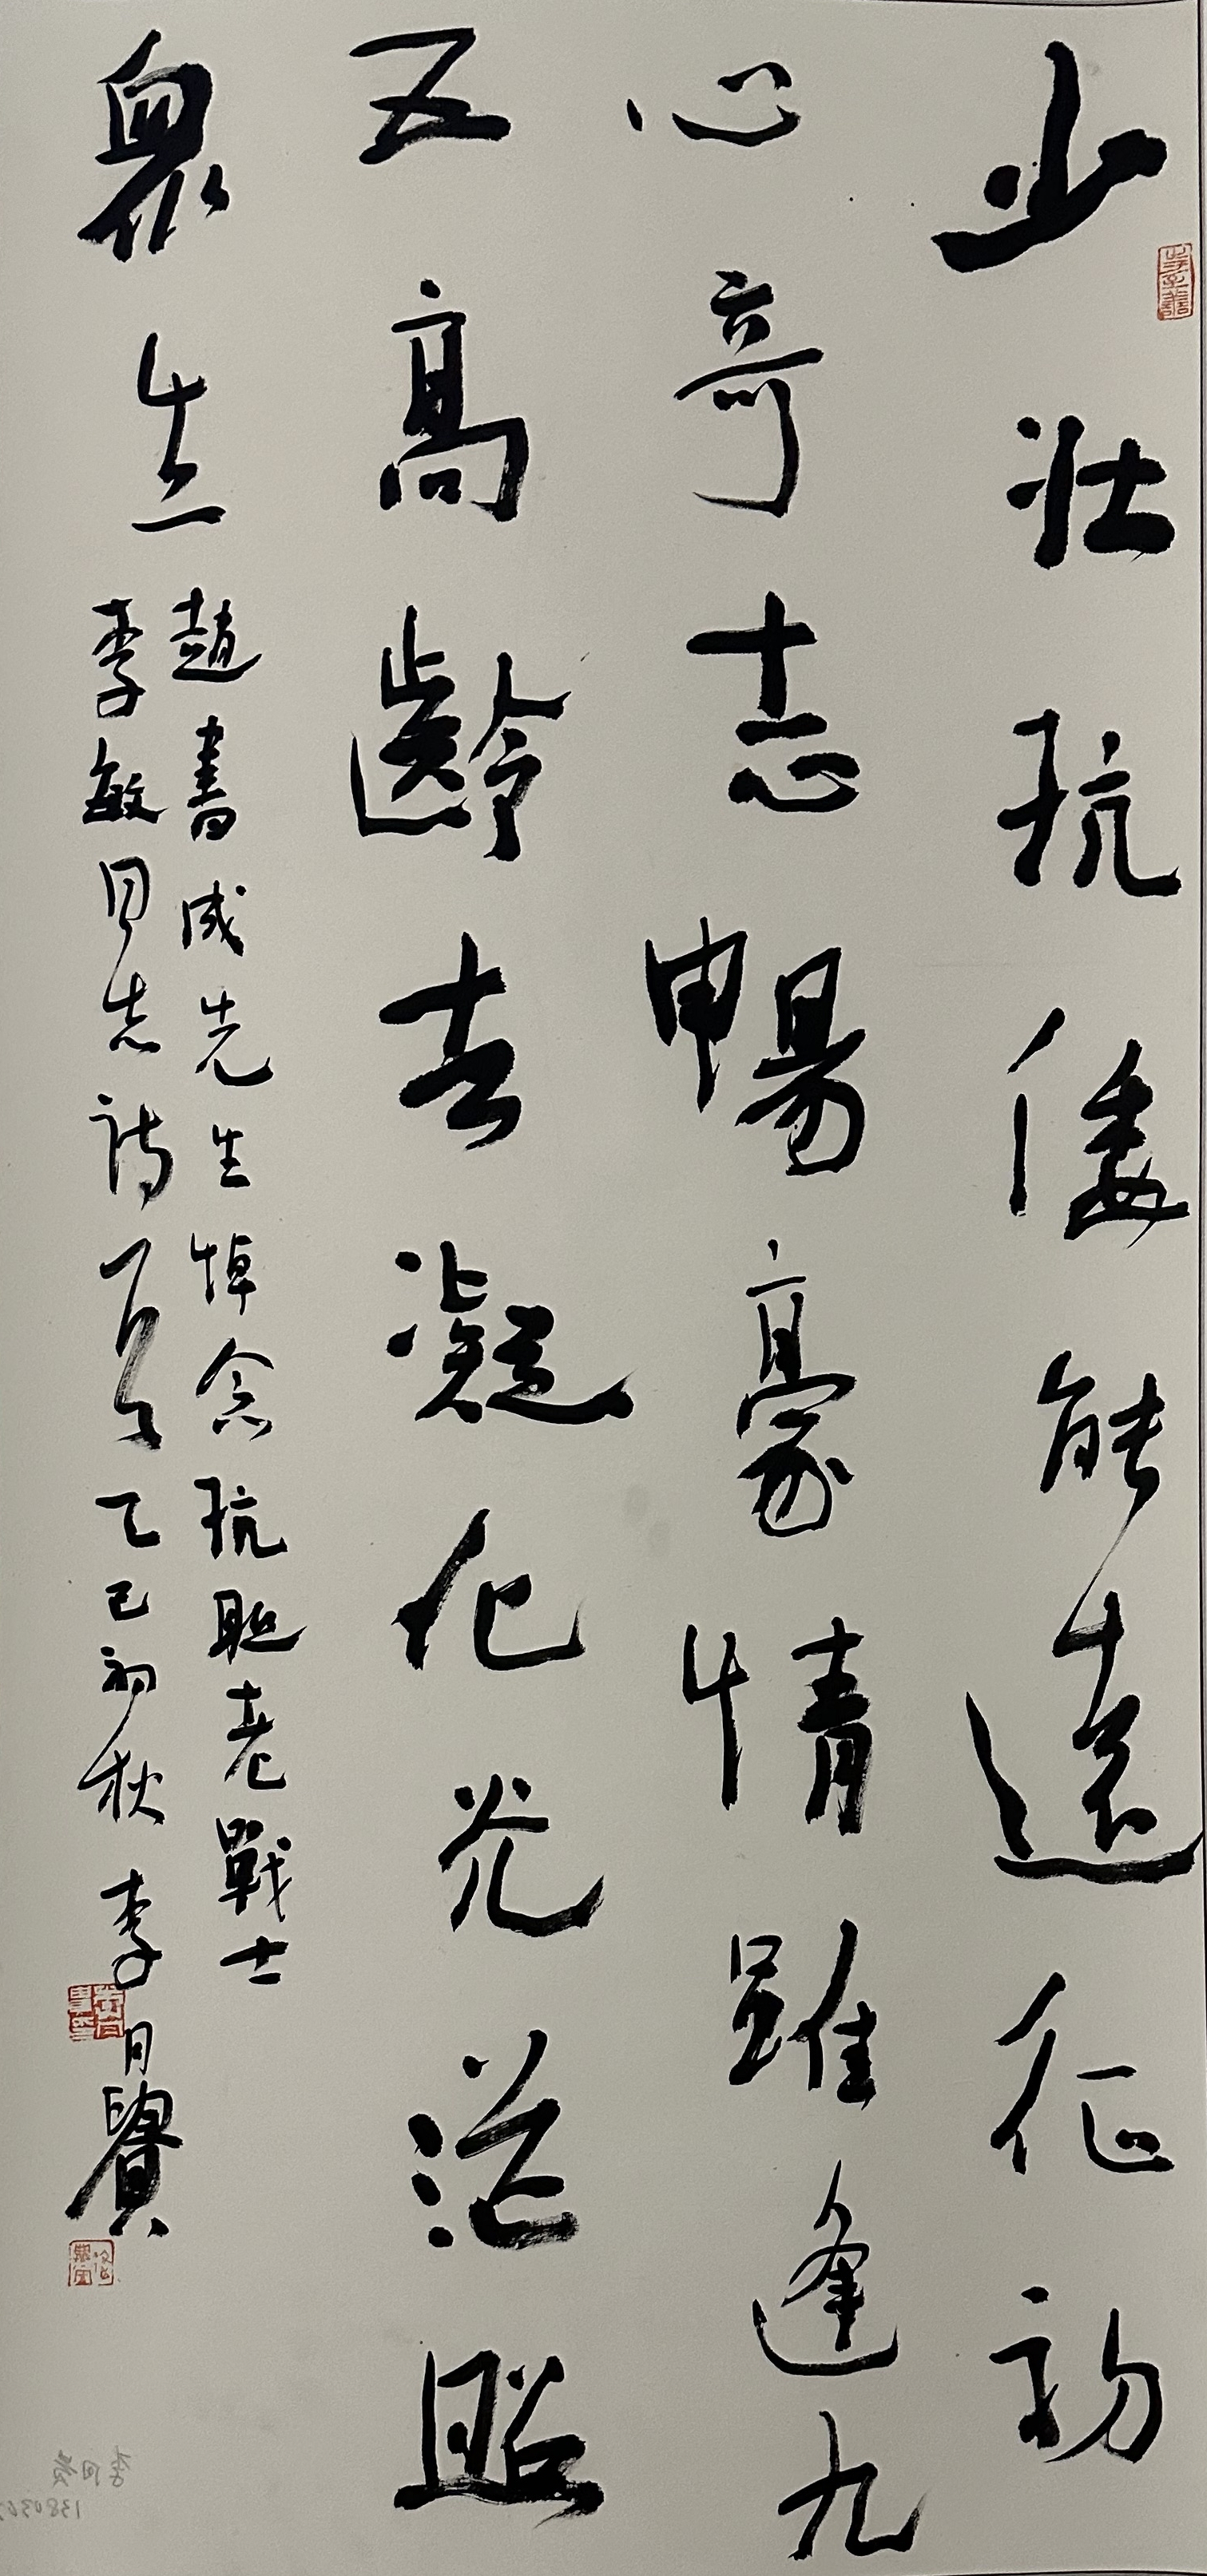 少壯抗倭能遠征初
心奇志暢豪情雖逢九
五高齡去凝化光芒照
衆生
趙書成先生悼念抗聯老戰士
李敏同志詩一首乙巳初秋李月賓